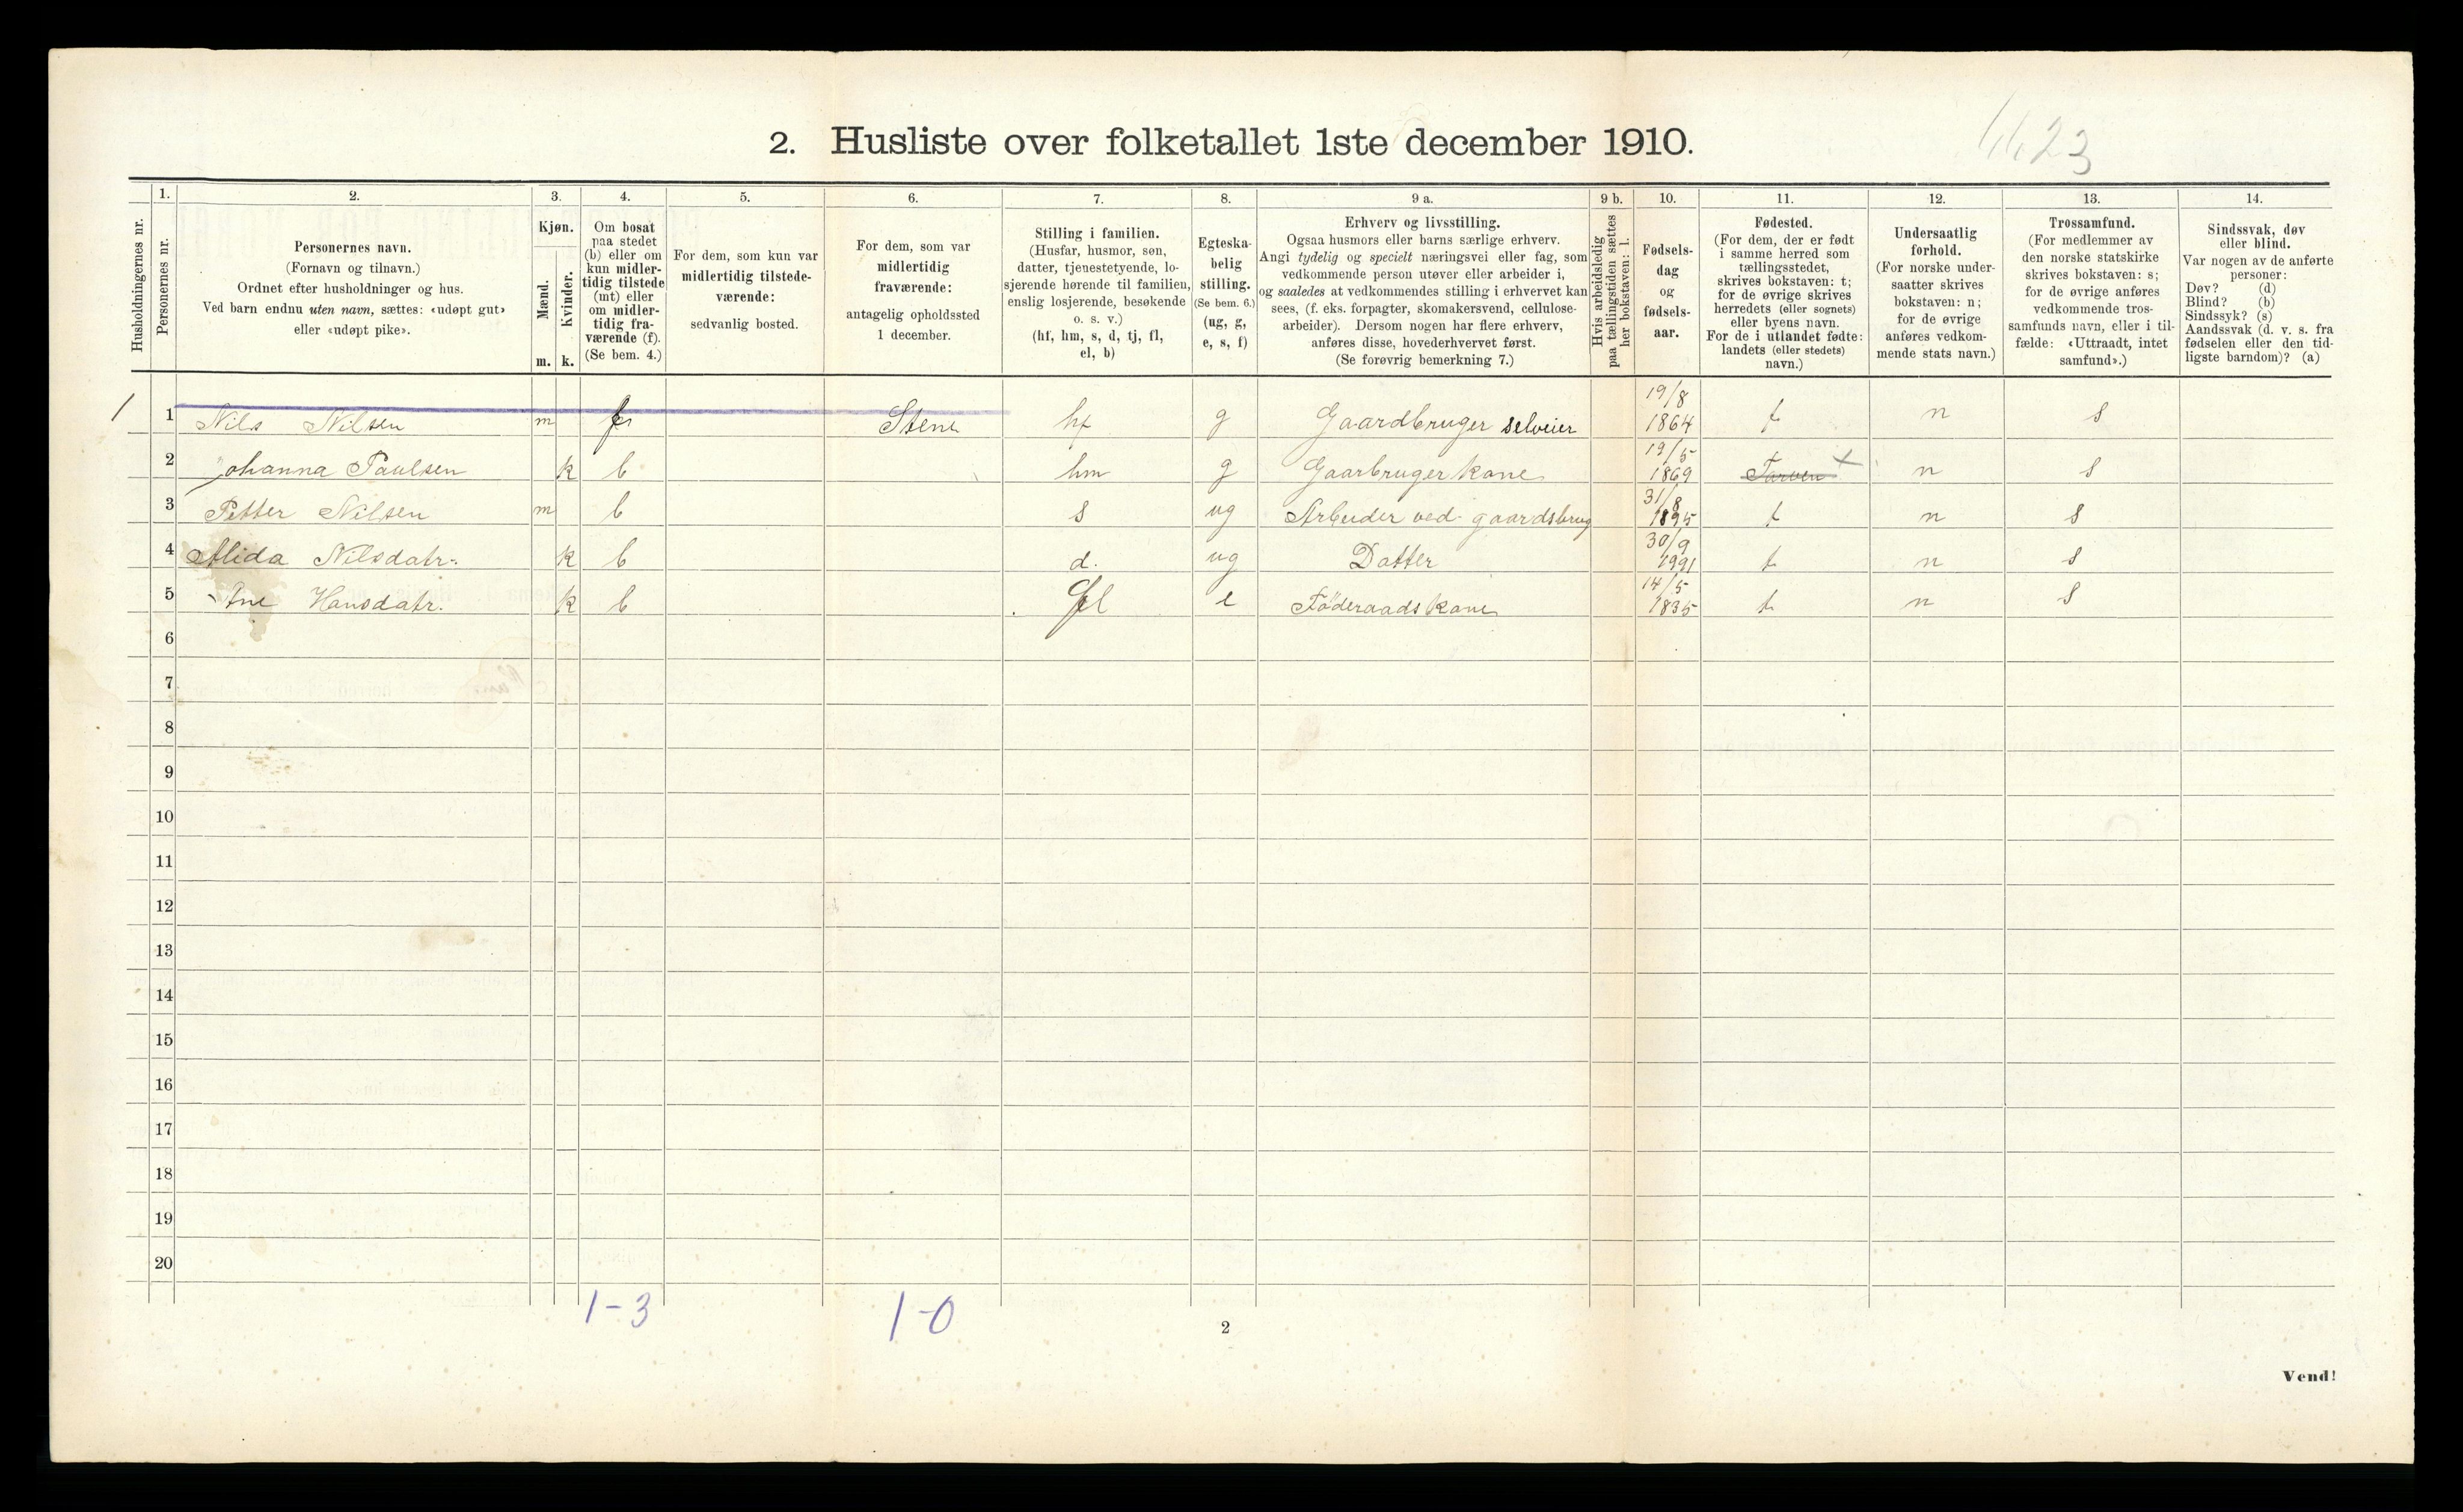 1623
2. Husliste over folketallet 1ste december 1910.
1. 2. 3. 4. 5. 6. 7. 8. 9 a. 9 b. 10. 11. 12. 13. 14.
Husholdningernes nr.
Personernes nr.
Personernes navn.
(Fornavn og tilnavn.)
Ordnet efter husholdninger og hus.
Ved barn endnu uten navn, sættes: «udøpt gut»
eller «udøpt pike».
Kjøn.
Mænd.
Kvinder.
m. k.
Om bosat
paa stedet
(b) eller om
kun midler-
tidig tilstede
(mt) eller
om midler-
tidig fra-
værende (f).
(Se bem. 4.)
For dem, som kun var
midlertidig tilstede-
værende:
sedvanlig bosted.
For dem, som var
midlertidig
fraværende:
antagelig opholdssted
1 december.
Stilling i familien.
(Husfar, husmor, søn,
datter, tjenestetyende, lo-
sjerende hørende til familien,
enslig losjerende, besøkende
o. s. v.)
(hf, hm, s, d, tj, fl,
el, b)
Egteska-
belig
stilling.
(Se bem. 6.)
(ug, g,
e, s, f)
Erhverv og livsstilling.
Ogsaa husmors eller barns særlige erhverv.
Angi tydelig og specielt næringsvei eller fag, som
vedkommende person utøver eller arbeider i,
og saaledes at vedkommendes stilling i erhvervet kan
sees, (f. eks. forpagter, skomakersvend, cellulose-
arbeider). Dersom nogen har flere erhverv,
anføres disse, hovederhvervet først.
(Se forøvrig bemerkning 7.)
Hvis arbeidsledig
paa tællingstiden sættes
her bokstaven: l.
Fødsels-
dag
og
fødsels-
aar.
Fødested.
(For dem, der er født
i samme herred som
tællingsstedet,
skrives bokstaven: t;
for de øvrige skrives
herredets (eller sognets)
eller byens navn.
For de i utlandet fødte:
landets (eller stedets)
navn.)
Undersaatlig
forhold.
(For norske under-
saatter skrives
bokstaven: n;
for de øvrige
anføres vedkom-
mende stats navn.)
Trossamfund.
(For medlemmer av
den norske statskirke
skrives bokstaven: s;
for de øvrige anføres
vedkommende tros-
samfunds navn, eller i til-
fælde: «Uttraadt, intet
samfund».)
Sindssvak, døv
eller blind.
Var nogen av de anførte
personer:
Døv? (d)
Blind? (b)
Sindssyk? (s)
Aandssvak (d. v. s. fra
fødselen eller den tid-
ligste barndom)? (a)
1 1 Nils Nilsen m f Stene hf g Gaardbruger selveier 19/8 1864 t n s
2 Johanna Paulsen k b hm g Gaarbruger kone 19/5 1869 t n s
3 Petter Nilsen m b s ug Arbeider ved gaardsbrug 31/8 1895 t n s
4 Alida Nilsdatr. k b d. ug Datter 30/9 1991 t n s
5 Ane Hansdatr. k b fl e Föderaadskone 14/5 1835 t n s
6
7
8
9
10
11
12
13
14
15
16
17
18
19
20
1-3 1-0
2
Vend!